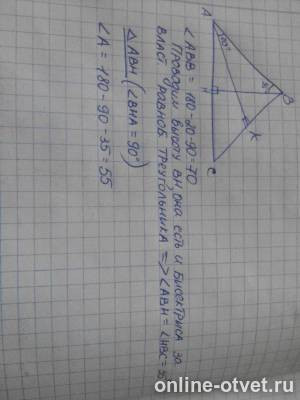 A
B
C
H
K
20°
35
∠ABB = 180-20-90=70
Проводим высоту BH, она есть и биссектриса по
власт. равноб. треугольника => ∠ABH = ∠HBC = 35
△ABH (∠BHA = 90°)
∠A = 180 - 90 - 35 = 55
online-otvet.ru